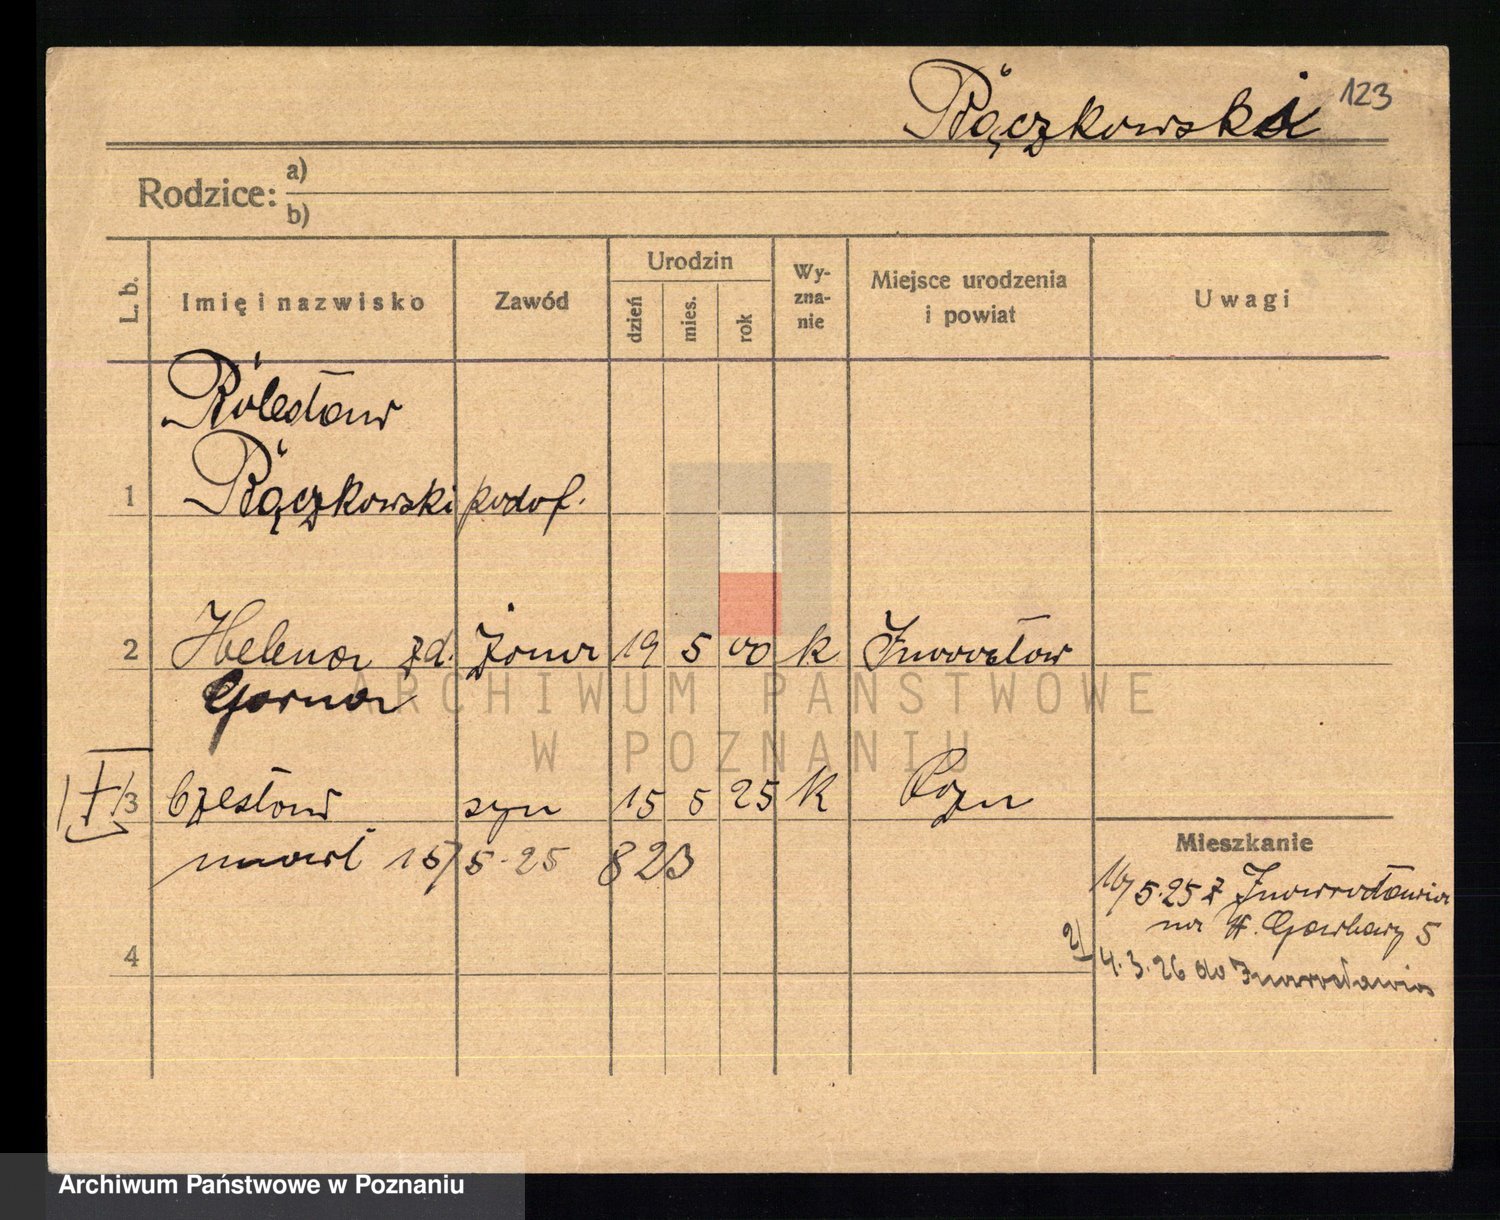 Bączkowski 123
Rodzice: a)
b)
L. b.
Imię i nazwisko
Zawód
Urodzin
dzień
mies.
rok
Wy-
zna-
nie
Miejsce urodzenia
i powiat
Uwagi
Bolesław
1 Bączkowski podof.
2 Helena zd. żona 19 5 00 k Inowrocław
Gorna
3 Czesław syn 15 5 25 k Pozn
umarł 15/5.25 823
4
Mieszkanie
16/5.25 z Inowrocławia
na W. Garbary 5
2/4.3.26 do Inowrocławia
ARCHIWUM PAŃSTWOWE
W POZNANIU
Archiwum Państwowe w Poznaniu